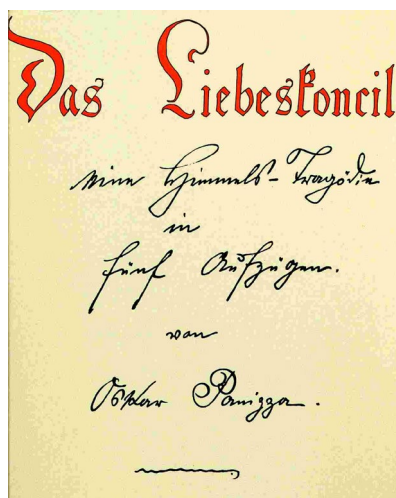 Das Liebeskoncil
eine Himmels-Tragödie
in
fünf Aufzügen.
von
Oskar Panizza.